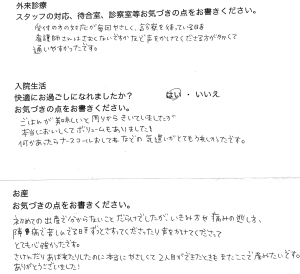 外来診療
スタッフの対応、待合室、診察室等お気づきの点をお書きください。
受付の方の対応が毎回やさしく、診察を待っている時
看護師さんはさりげないですがなど声をかけてくださる方が多くて
通いやすかったです。
入院生活
快適にお過ごしになれましたか？ はい ・ いいえ
お気づきの点をお書きください。
ごはんが美味しいと周りからきいていましたが
本当においしくてボリュームもありました！
何かあったらナースコールおしてね などの気遣いがとてもうれしかったです。
お産
お気づきの点をお書きください。
初めての出産で分からないことだらけでしたが、いきみ方や痛みの逃し方、
陣痛で苦しんでる時ずっとさすってくださったり声をかけてくださって
とても心強かったです。
さけんだりあばれたりしたのに本当にやさしくて2人目ができたときもまたここで産みたいです。
ありがとうございました！